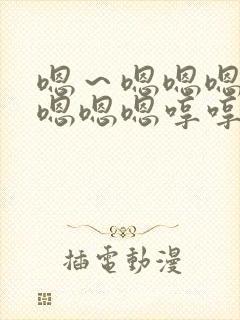 嗯～嗯嗯嗯
嗯嗯嗯哼哼
插電動漫